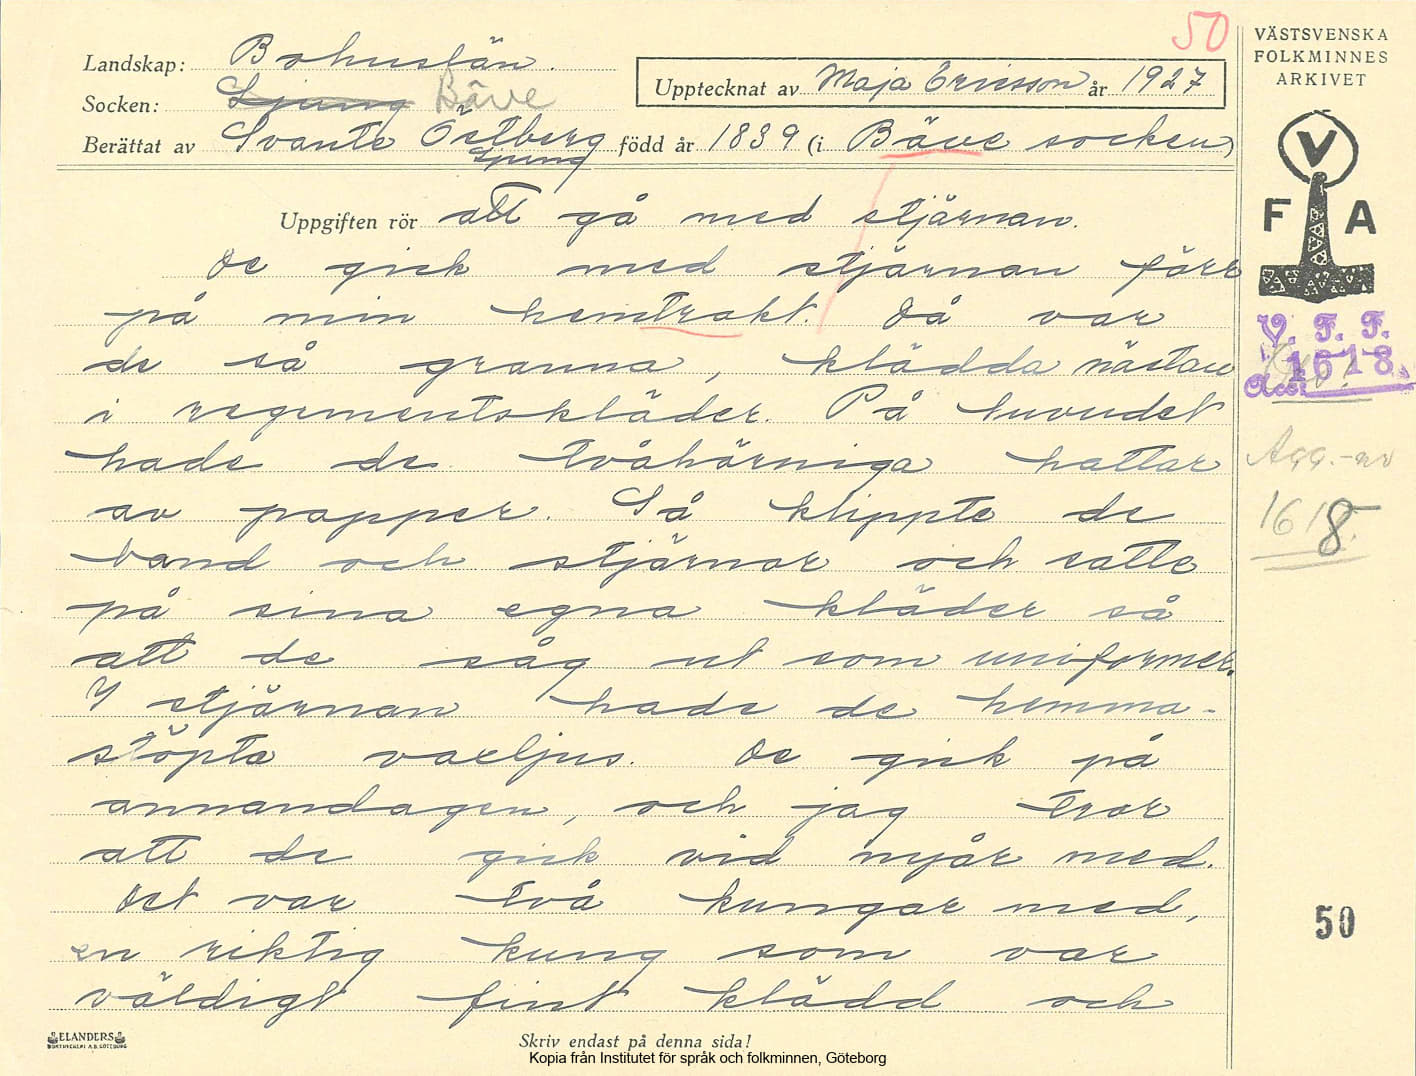 50
Landskap: Bohuslän.
Socken: Ljung Bäve
Upptecknat av Maja Ericsson år 1927
Berättat av Svante Östberg född år 1839 (i Bäve socken)
Ljung
Uppgiften rör att gå med stjärnan.
De gick med stjärnan förr
på min hemtrakt. Då var
de så granna, klädda nästan
i regementskläder. På huvudet
hade de tvåhörniga hattar
av papper. Så klippte de
band och stjärnor och satte
på sina egna kläder så
att de såg ut som uniformer.
I stjärnan hade de hemma-
stöpta vaxljus. De gick på
annandagen, och jag tror
att de gick vid nyår med.
Det var två kungar med,
en riktig kung som var
väldigt fint klädd och
Skriv endast på denna sida!
ELANDERS
BOKTRYCKERI A.B. GÖTEBORG
Kopia från Institutet för språk och folkminnen, Göteborg
VÄSTSVENSKA
FOLKMINNES
ARKIVET
V
F A
V. F. F.
1618
Acc.
Acc.-nr
1618.
50